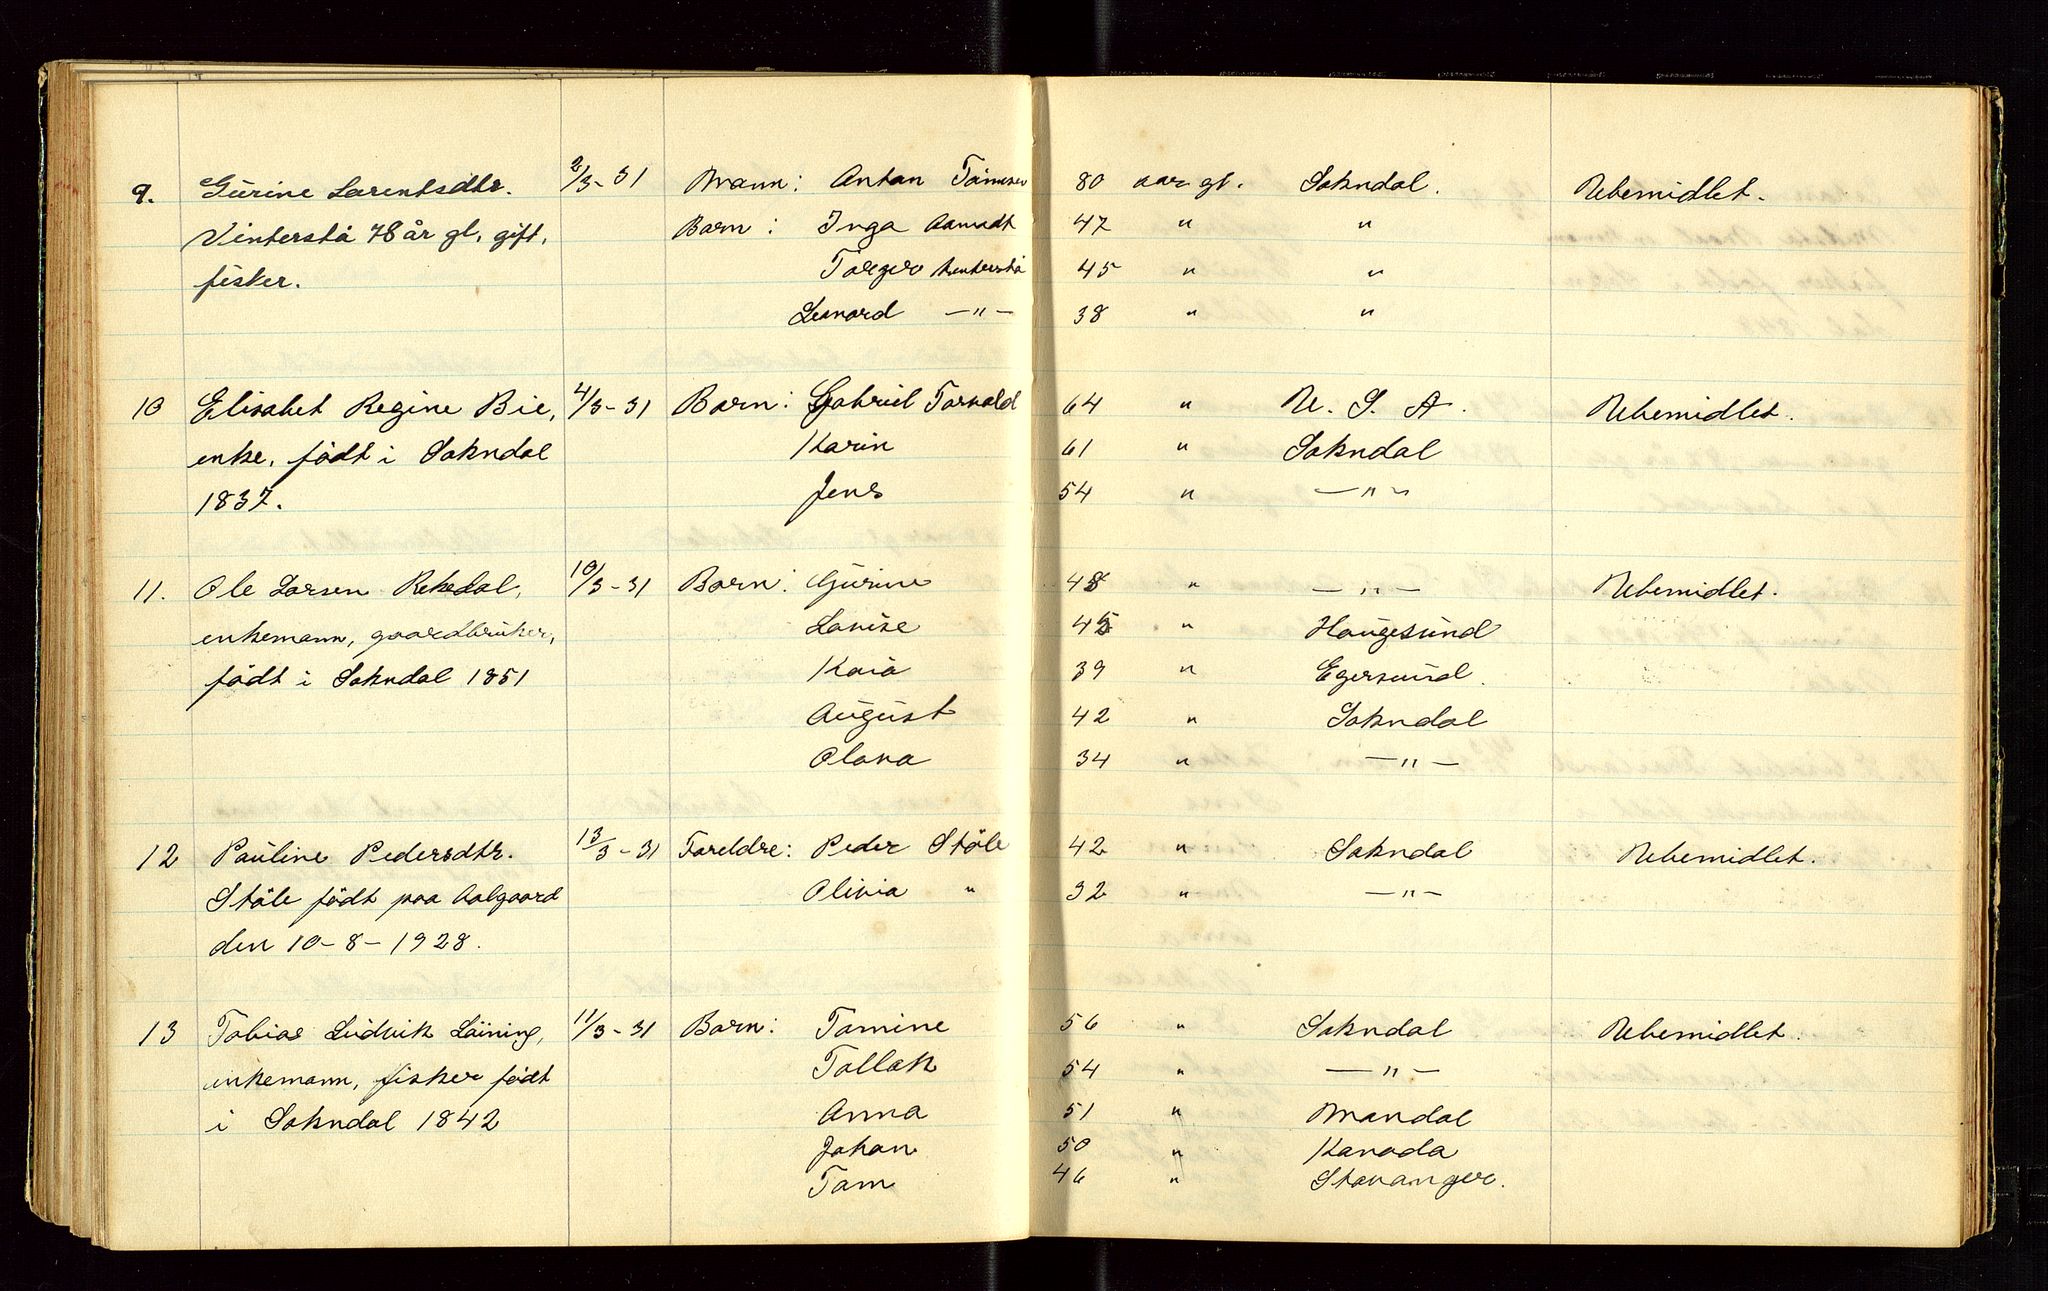 9. Gurine Larentsdtr. 2/3-31 Mann: Anton Tönnesen 80 aar gl. Sokndal. Ubemidlet.
Vinterstå 78 år gl, gift, Barn: Inga Aamodt 47 " "
fisker. Torger Vinterstå 45 " "
Leonard —"— 38 " "
10 Elisabet Regine Bie, 4/3-31 Barn: Gabriel Torvald 64 " U. S. A. Ubemidlet.
enke, födt i Sokndal Karin 61 " Sokndal
1837. Jens 54 " —"—
11. Ole Larsen Rekedal, 10/3-31 Barn: Gurine 48 " —"— Ubemidlet.
enkemann, gaardbruker, Lovise 45 " Haugesund
födt i Sokndal 1851 Kaia 39 " Egersund.
August 42 " Sokndal
Olava 34 " —"—
12 Pauline Pedersdtr. 13/3-31 Foreldre: Peder Stöle 42 " Sokndal Ubemidlet.
Stöle födt paa Aalgaard Olivia " 32 " —"—
den 10-8-1928.
13 Tobias Ludvik Löining, 11/3-31 Barn: Tomine 56 " Sokndal Ubemidlet.
enkemann, fisker födt Tollak 54 " —"—
i Sokndal 1842 Anna 51 " Mandal
Johan 50 " Kanada
Tom 46 " Stavanger.